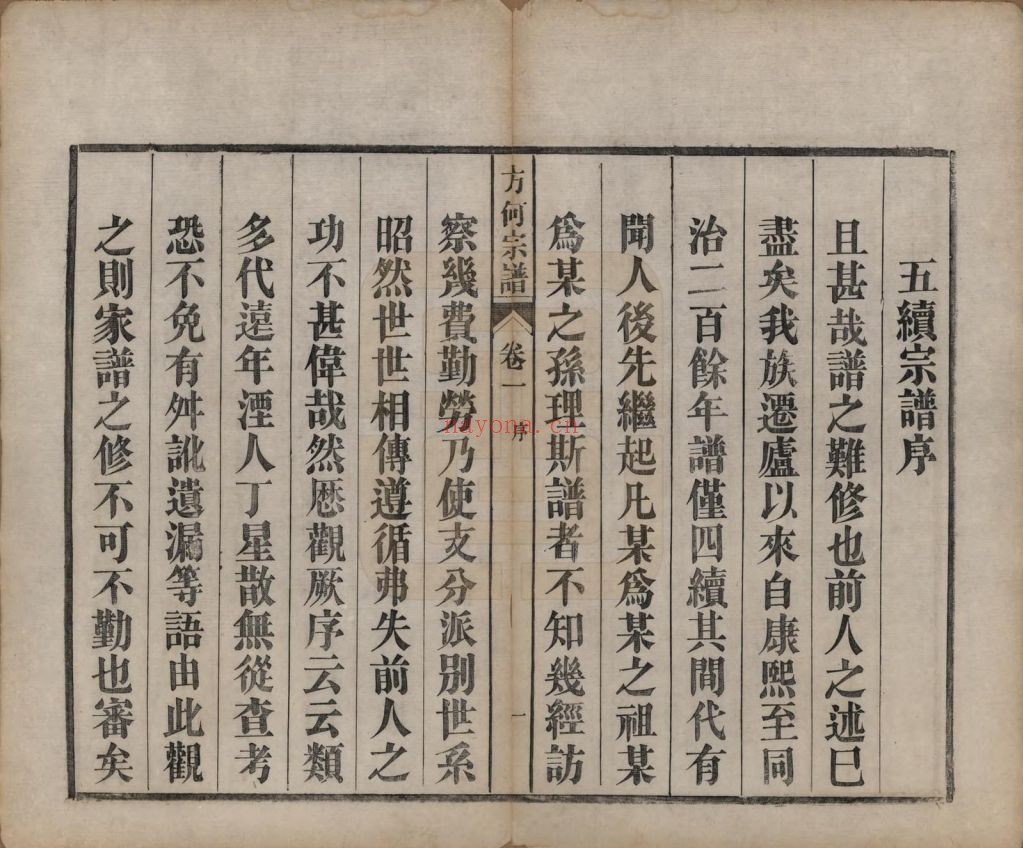 五續宗譜序
且甚哉譜之難修也前人之述已
盡矣我族遷廬以來自康熙至同
治二百餘年譜僅四續其間代有
聞人後先繼起凡某爲某之祖某
爲某之孫理斯譜者不知幾經訪
方何宗譜 卷一 序 一
察幾費勤勞乃使支分派別世系
昭然世世相傳遵循弗失前人之
功不甚偉哉然歷觀厥序云云類
多代遠年湮人丁星散無從查考
恐不免有舛訛遺漏等語由此觀
之則家譜之修不可不勤也審矣
nayona.cn